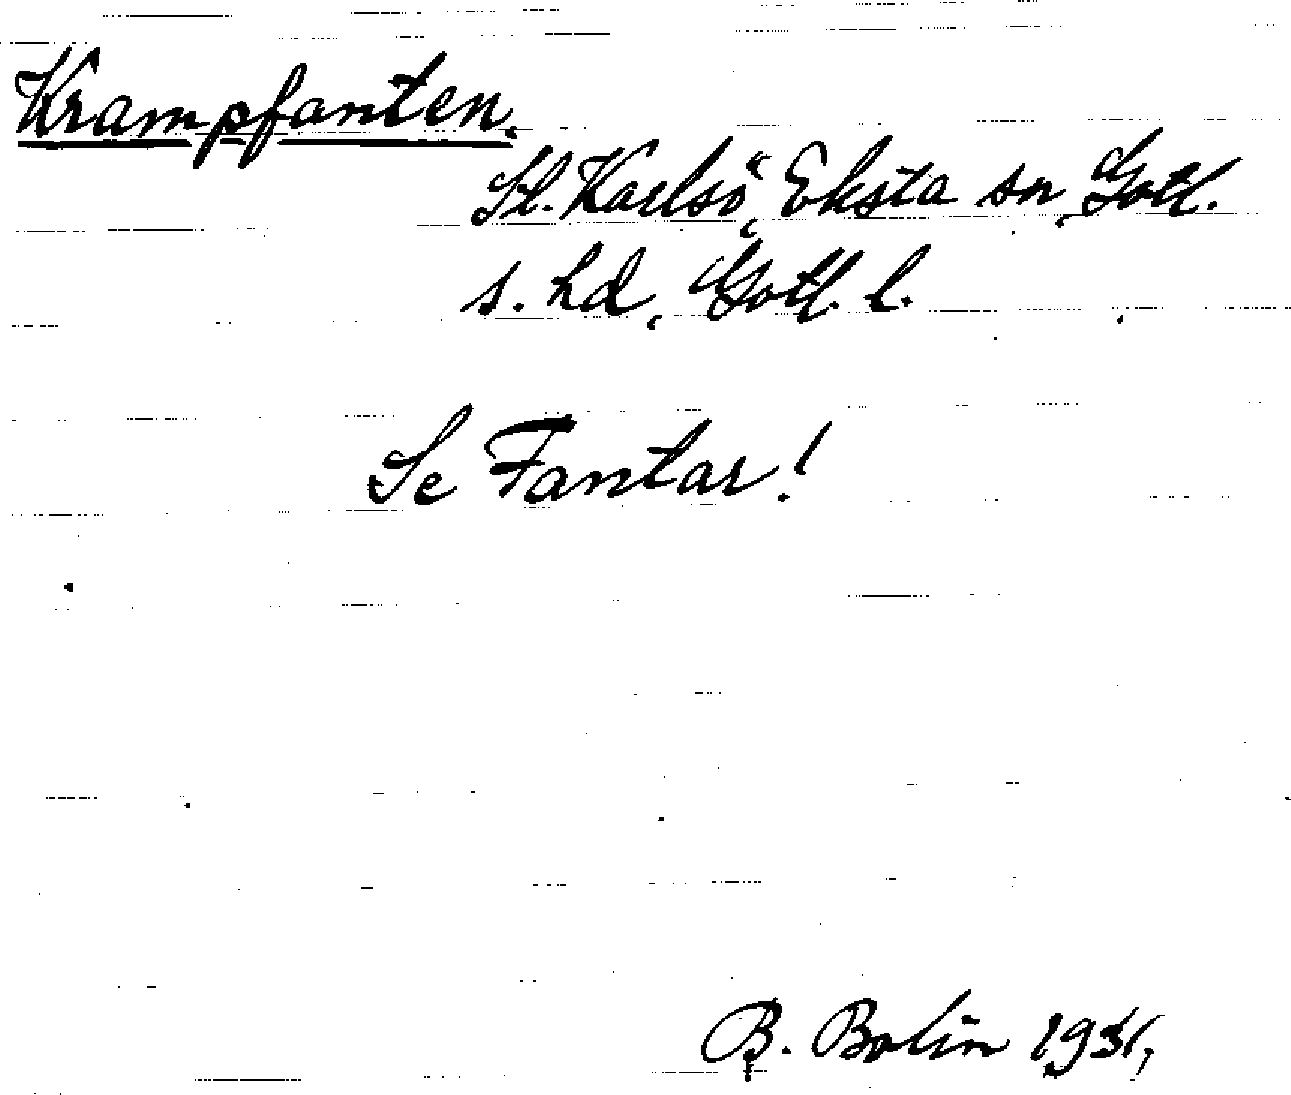 Krampfanten.
St. Karlsö, Eksta sn, Gotl.
s. hd, Gotl. l.
Se Fantar!
B. Bolin 1931,